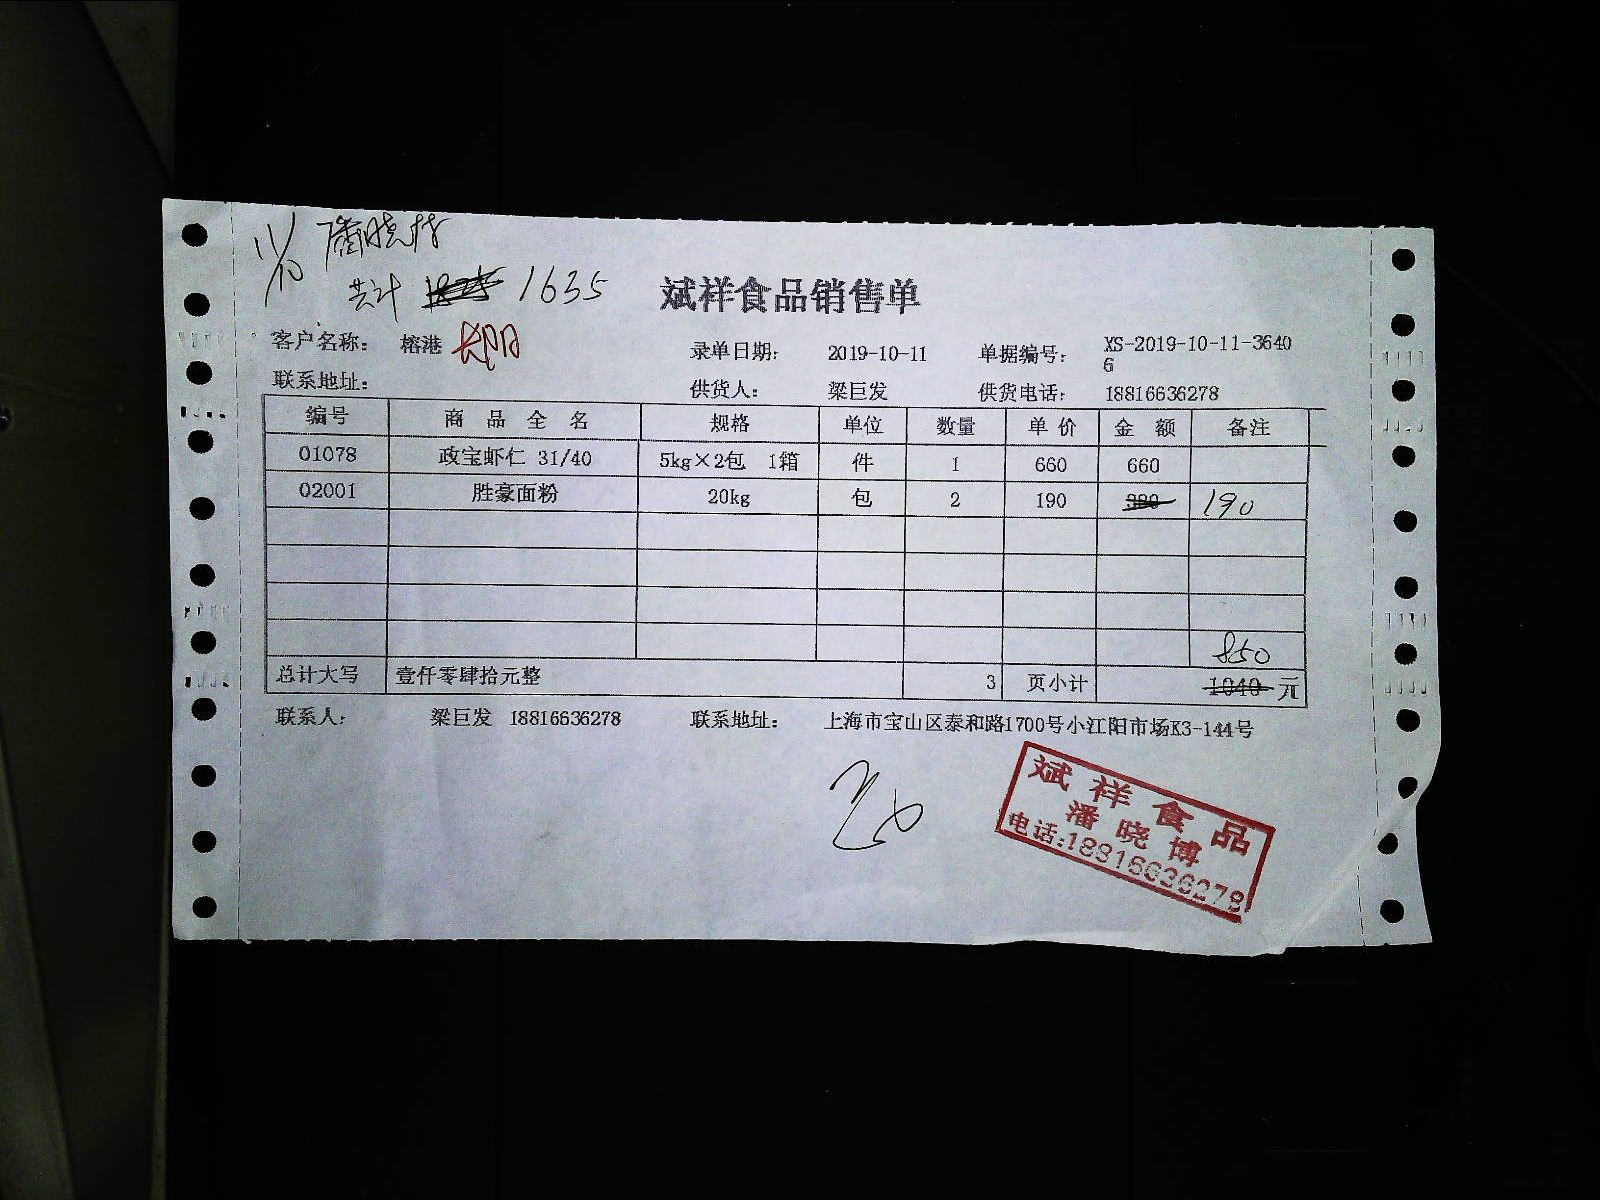 11/10 潘晓博
共计 1635
斌祥食品销售单
客户名称： 榕港 录单日期： 2019-10-11 单据编号： XS-2019-10-11-3640
6
联系地址： 供货人： 梁巨发 供货电话： 18816636278
编号 商 品 全 名 规格 单位 数量 单 价 金 额 备注
01078 政宝虾仁 31/40 5kg×2包 1箱 件 1 660 660
02001 胜豪面粉 20kg 包 2 190 380 190
850
总计大写 壹仟零肆拾元整 3 页小计 1040 元
联系人： 梁巨发 18816636278 联系地址： 上海市宝山区泰和路1700号小江阳市场K3-144号
斌祥食品
潘晓博
电话:18816636278